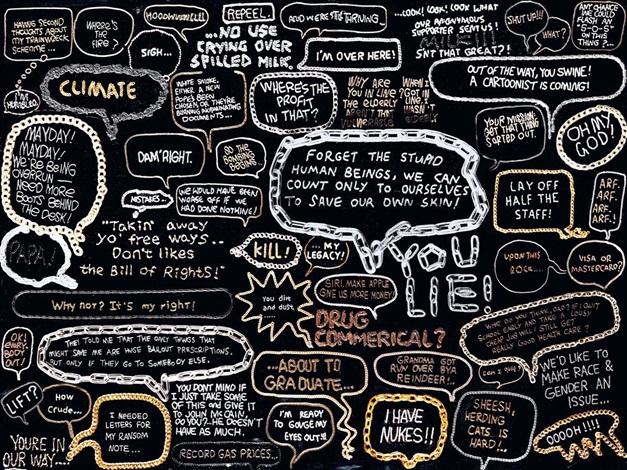 HAVING SECOND
THOUGHTS ABOUT
MY TRAINWRECK
SCHEME...
WHERE'S
THE
FIRE?
HOODWINK!!!
REPEEL!
AND WE'RE STILL THRIVING...
...LOOK! LOOK! LOOK WHAT
OUR ANONYMOUS
SUPPORTER SENT US!
SN'T THAT GREAT?!
SHUT UP!!!
WHAT?
ANY CHANCE
WE COULD
FLASH AN
"S-O-S"
ON THIS
THING?...
SIGH...
...NO USE
CRYING OVER
SPILLED MILK.
I'M OVER HERE!
I'M
HUMBLED.
CLIMATE
WHITE SMOKE,
EITHER A NEW
POPE'S BEEN
CHOSEN, OR THEY'RE
BURNING
DOCUMENTS...
WHERE'S THE
PROFIT
IN THAT?
WHY ARE
YOU IN LINE?
THE ELDERLY
AREN'T THAT
VULNERABLE
WHEN I
GOT IN
LINE, I
WASN'T
ELDERLY
OUT OF THE WAY, YOU SWINE!
A CARTOONIST IS COMING!
MAYDAY!
MAYDAY!
WE'RE BEING
OVERRUN
NEED MORE
BOOTS BEHIND
THE DESK!
DAM' RIGHT.
SO THE
BOMBING
BEGINS
YOUR MISSION,
GET THAT THING
SORTED OUT.
OH MY
GOD!
FORGET THE STUPID
HUMAN BEINGS, WE CAN
COUNT ONLY TO OURSELVES
TO SAVE OUR OWN SKIN!
MISTAKES...
WE WOULD HAVE BEEN
WORSE OFF IF WE
HAD DONE NOTHING!
LAY OFF
HALF THE
STAFF!
ARF.
ARF.
ARF.
ARF!
PAPA!
"Takin' away
yo' free ways..
Don't likes
the Bill of Rights!"
KILL!
... MY
LEGACY!
YOU
LIE!
UPON THIS
ROCK....
VISA OR
MASTERCARD?
Why not? It's my right!
You dirt
and dust,
SIRI, MAKE APPLE
GIVE US MORE MONEY
DRUG
COMMERICAL?
WHAT DO YOU THINK, DAD? IF I QUIT
SCHOOL EARLY AND TAKE A LOUSY
CHEAP JOB WILL I STILL GET
REALLY GOOD HEALTH CARE?
OK!
EVERY-
BODY
OUT!
THEY TOLD ME THAT THE ONLY THINGS THAT
MIGHT SAVE ME ARE HUGE BAILOUT PRESCRIPTIONS.
BUT ONLY IF THEY GO TO SOMEBODY ELSE.
...ABOUT TO
GRADUATE...
GRANDMA GOT
RUN OVER BY A
REINDEER!..
CAN I QUIT
WE'D LIKE TO
MAKE RACE &
GENDER AN
ISSUE...
LIFT?
HOW
CRUDE...
I NEEDED
LETTERS FOR
MY RANSOM
NOTE...
YOU DON'T MIND IF
I JUST TAKE SOME
OF THIS AND GIVE IT
TO JOHN McCAIN,
DO YOU?..HE DOESN'T
HAVE AS MUCH.
I'M READY
TO GOUGE MY
EYES OUT!!!
I HAVE
NUKES!!
SHEESH,
HERDING
CATS IS
HARD!!
OOOOH!!!!
YOU'RE IN
OUR WAY....
RECORD GAS PRICES...